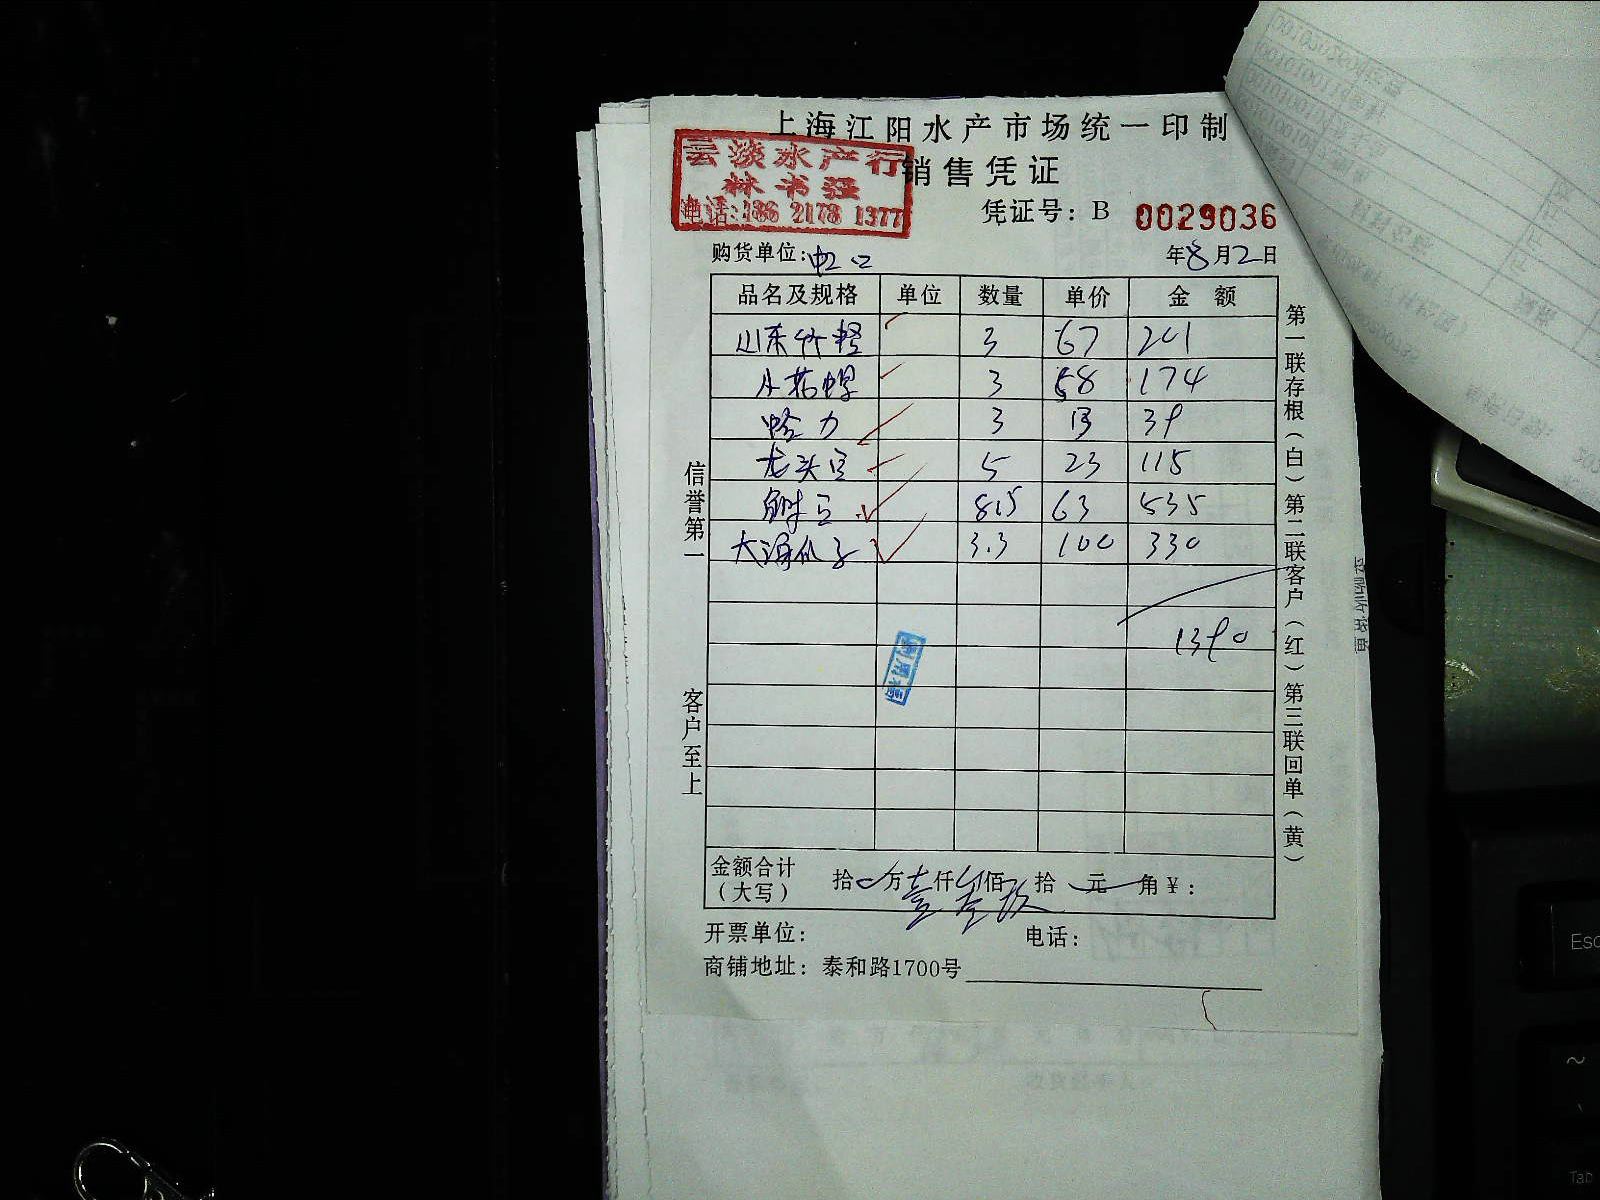 上海江阳水产市场统一印制
云淡水产行
销售凭证
林书强
电话:186 2178 1377
凭证号：B 0029036
购货单位: 虹口 年8月2日
品名及规格 单位 数量 单价 金额
山东竹蛏 3 67 201
小花螺 3 58 174
蛤力 3 13 39
龙头 5 23 115
8.5 63 535
大海瓜子 3.3 100 330
1390
信誉第一
客户至上
第一联存根（白）第二联客户（红）第三联回单（黄）
金额合计 拾 万壹仟叁佰玖拾 元 角￥：
（大写）
开票单位： 电话：
商铺地址：泰和路1700号
Esc
~
Tab